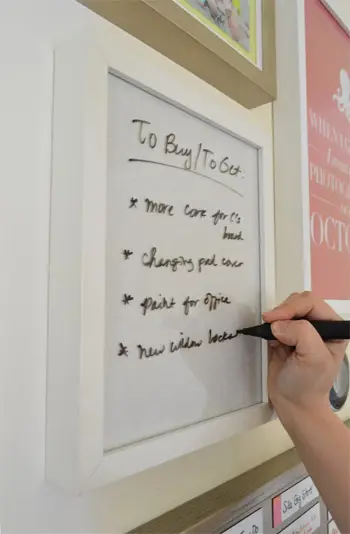 To Buy/To Get:
* more cork for C's
board
* changing pad cover
* paint for office
* new window locks
WHEN I G
PHOTOG
OCTO